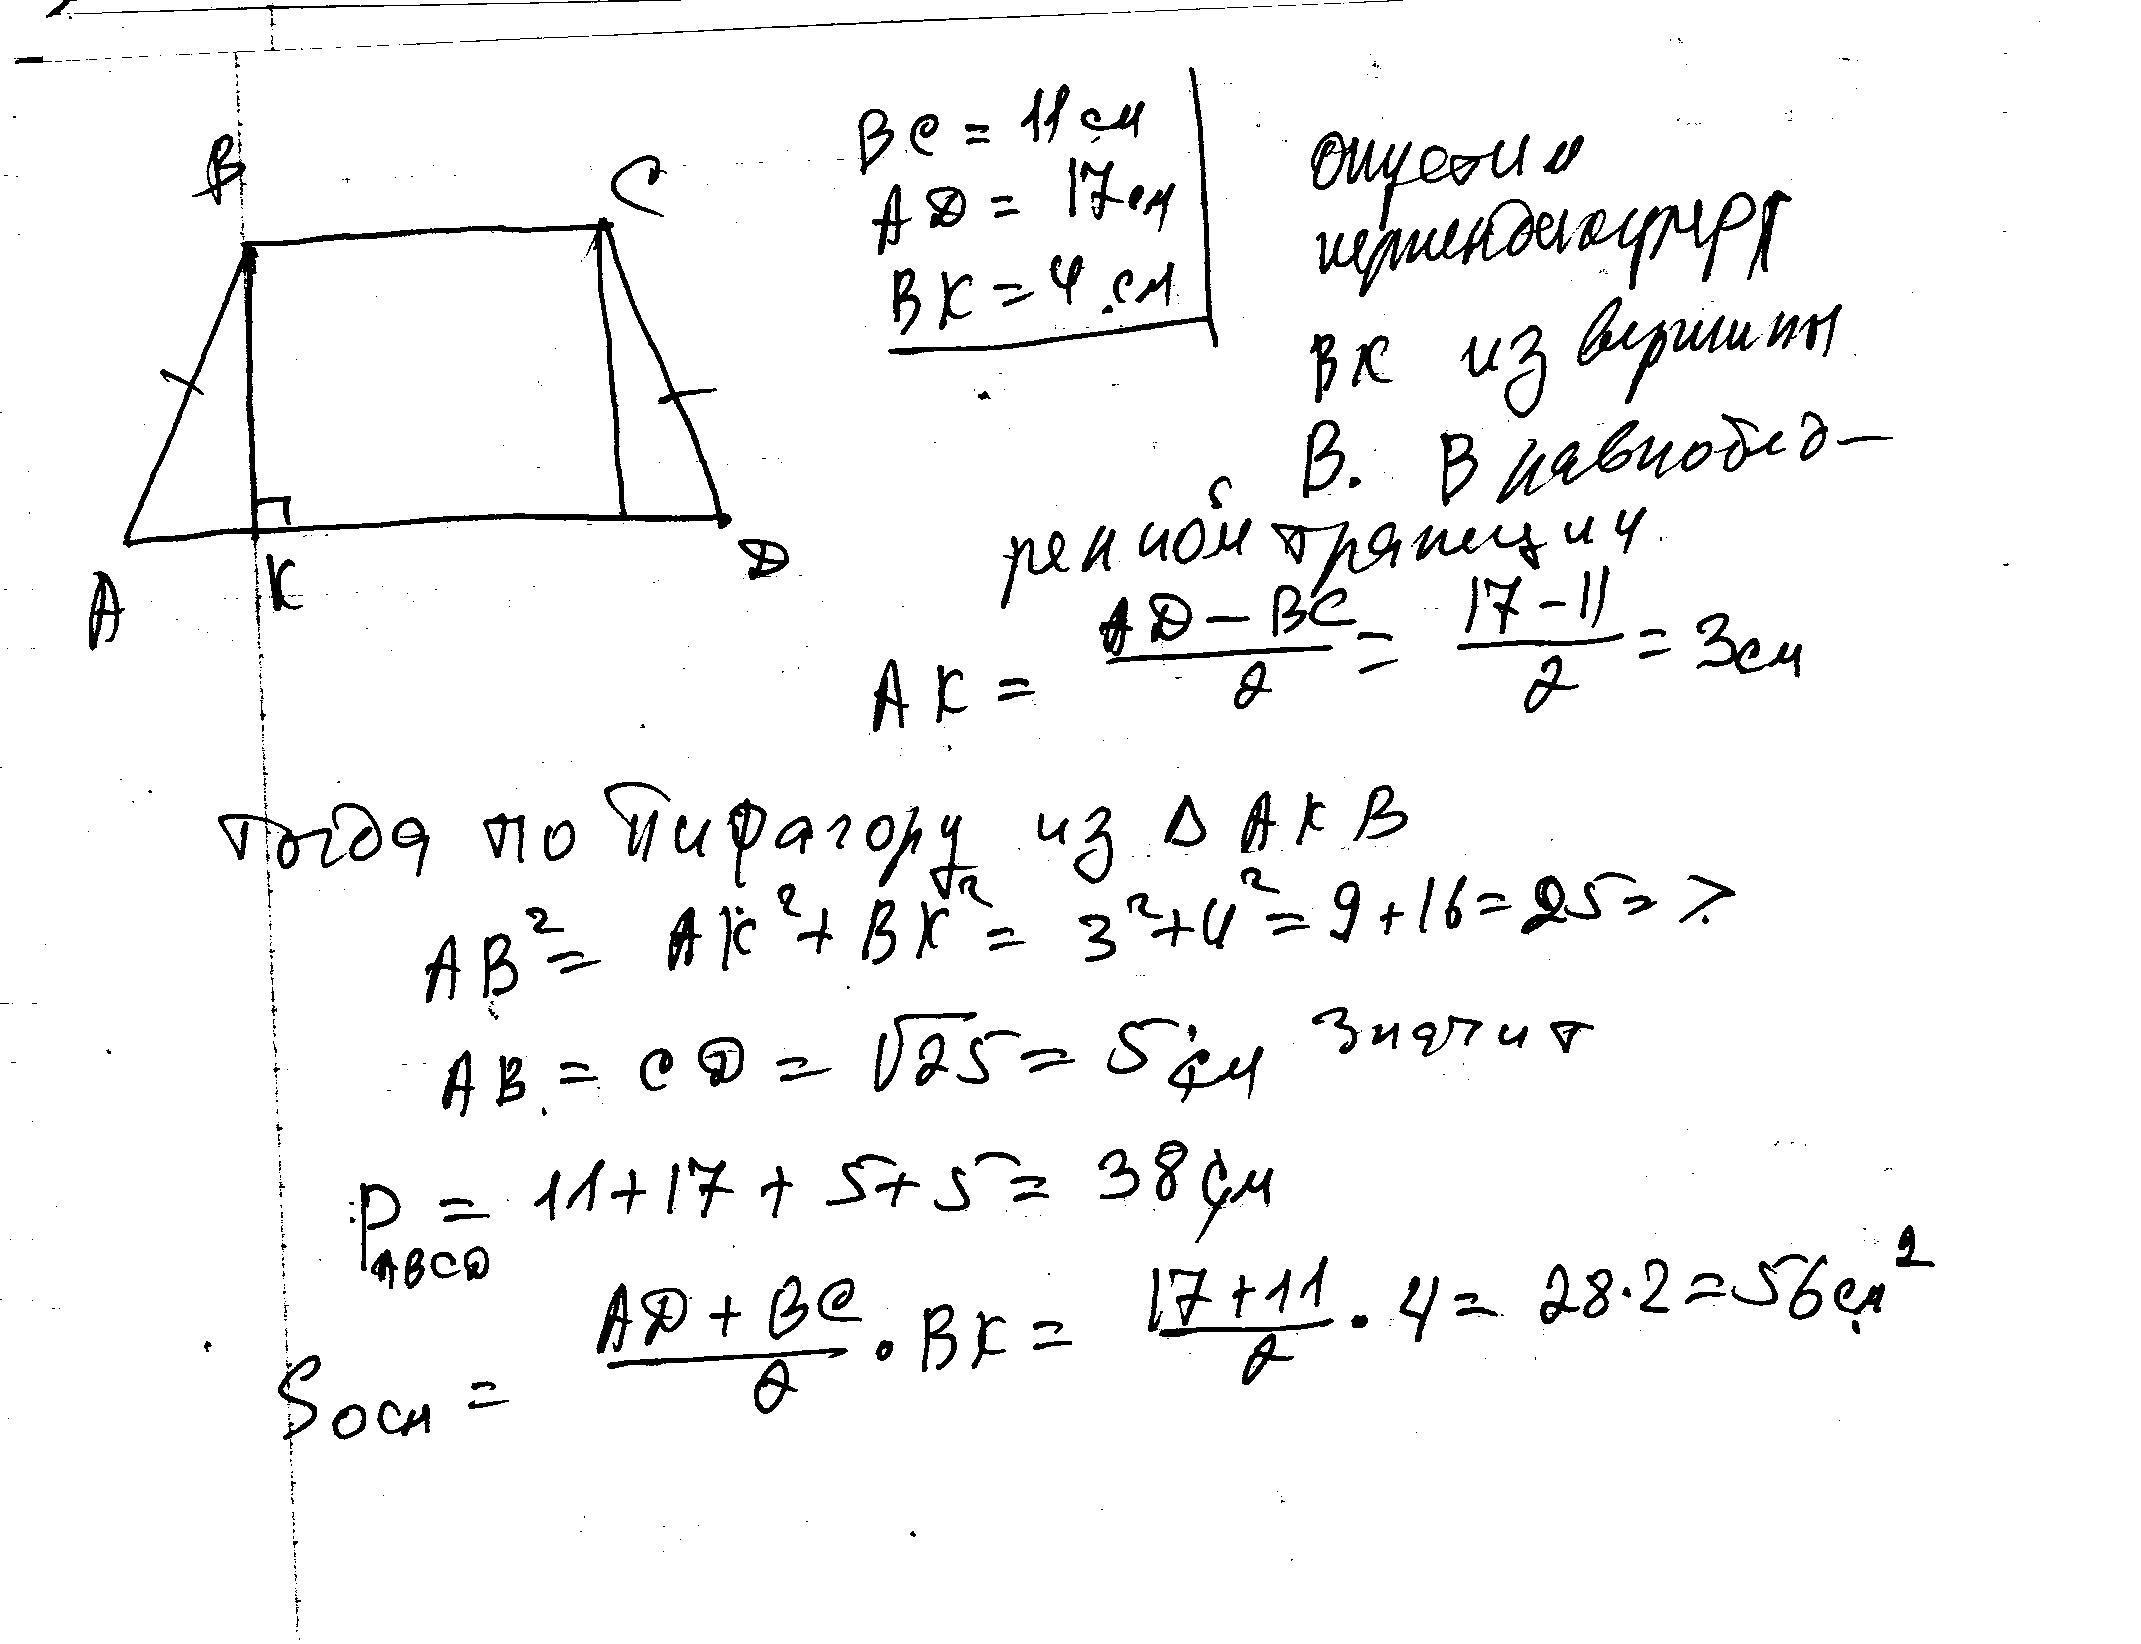 B C
A K D
BC = 11 см
AD = 17 см
BK = 4 см
опустим
перпендикуляр
BK из вершины
B. В равнобед-
ренной трапеции
AK = (AD - BC)/2 = (17 - 11)/2 = 3 см
Тогда по Пифагору из Δ AKB
AB² = AK² + BK² = 3² + 4² = 9 + 16 = 25 =>
AB = CD = √25 = 5 см значит
P_ABCD = 11 + 17 + 5 + 5 = 38 см
Sосн = (AD + BC)/2 · BK = (17 + 11)/2 · 4 = 28 · 2 = 56 см²